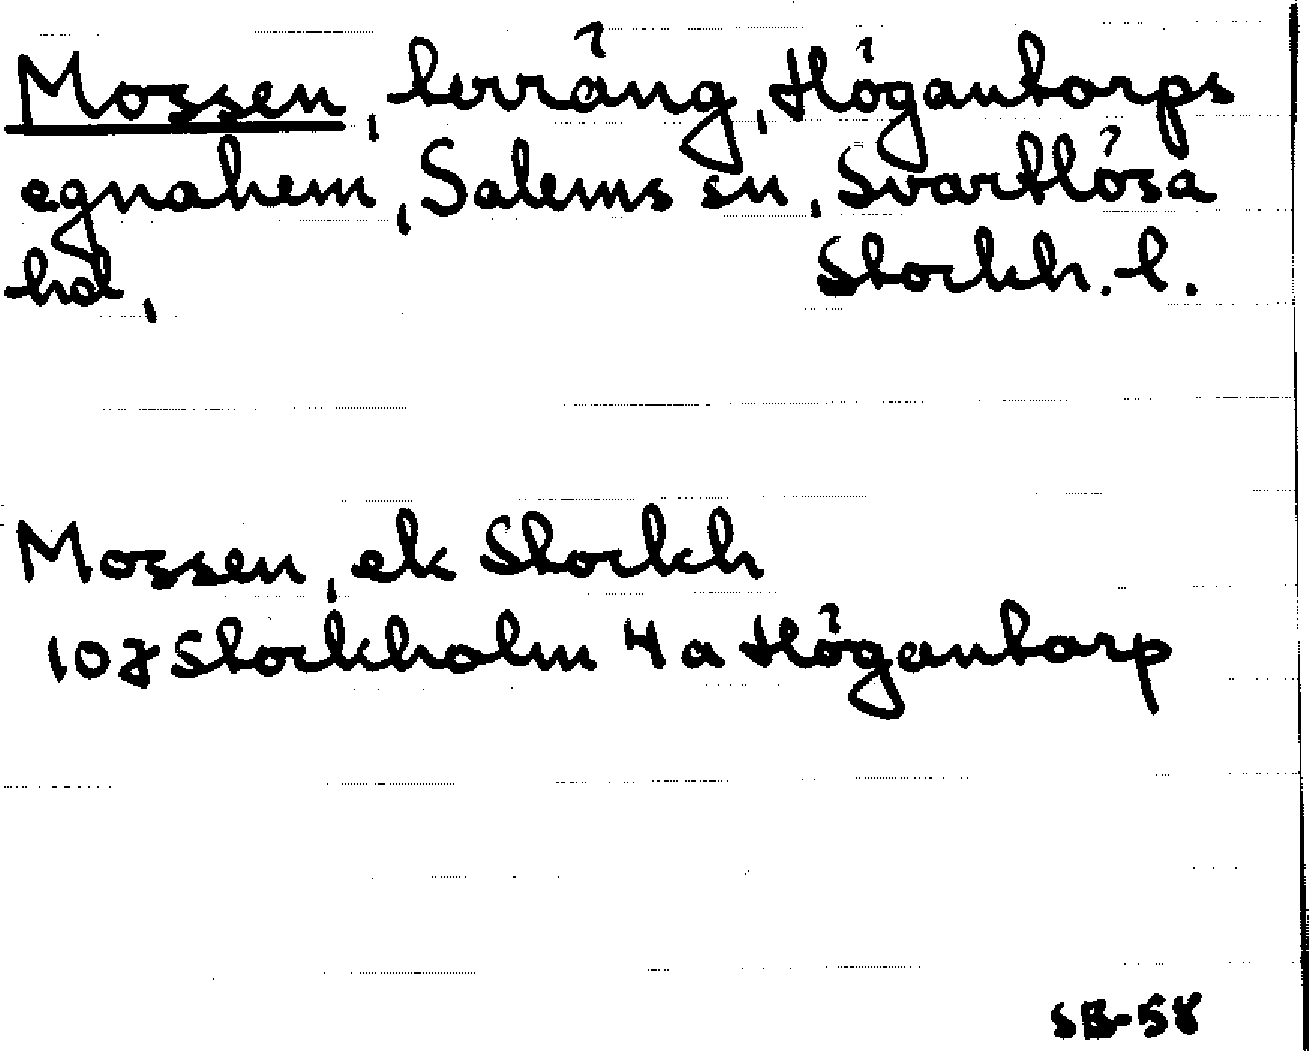 Mossen, terräng, Högantorps
egnahem, Salems sn, Svartlösa
hd, Stockh. l.
Mossen, ek Stockh
10J Stockholm 4a Högantorp
SB-58